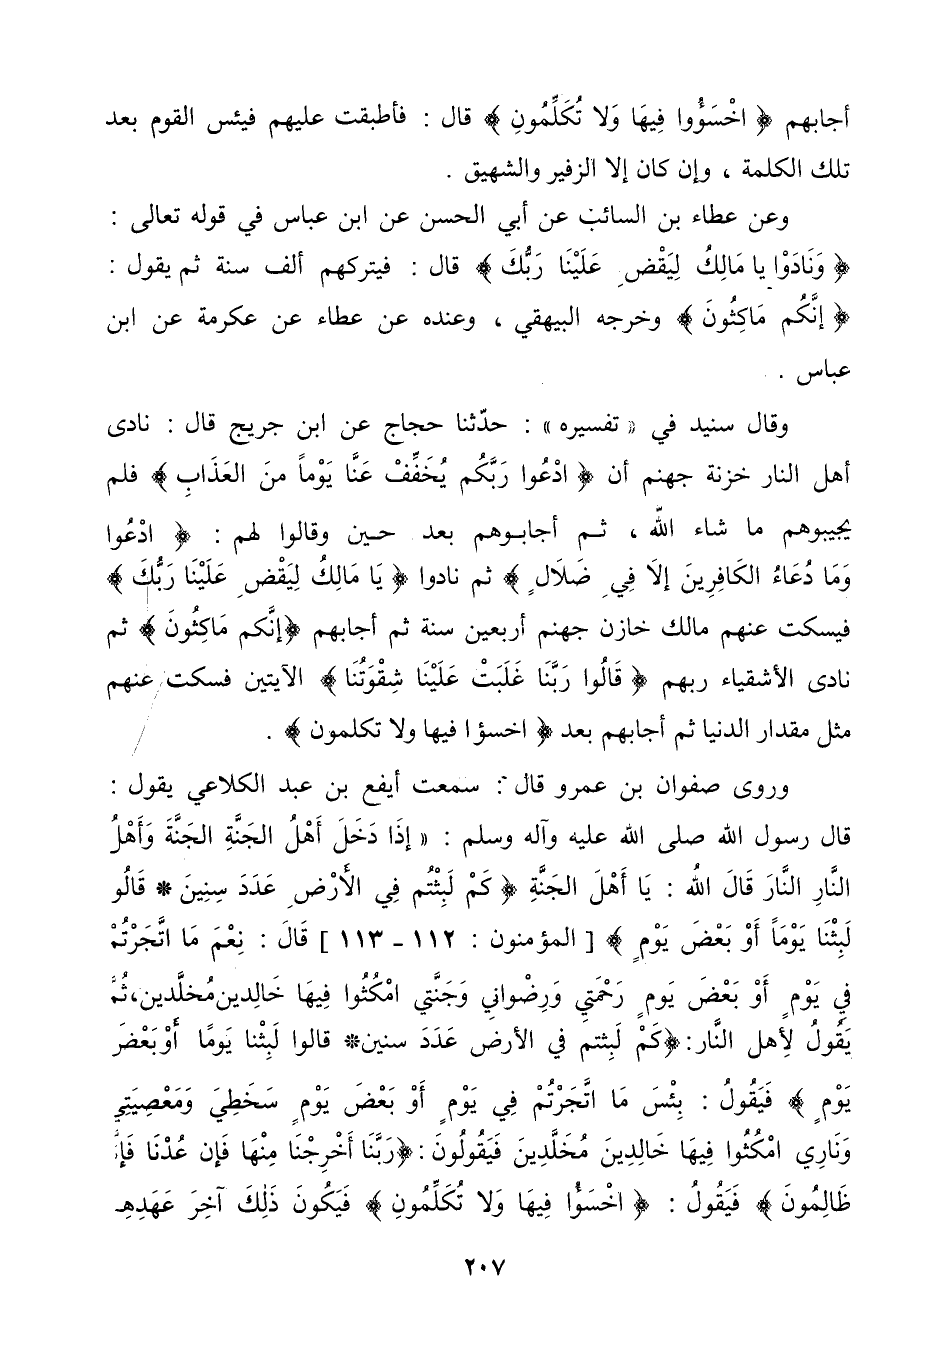 أجابهم ﴿ اخْسَؤُوا فِيهَا وَلا تُكَلِّمُونِ ﴾ قال : فأطبقت عليهم فيئس القوم بعد
تلك الكلمة ، وإن كان إلا الزفير والشهيق .
وعن عطاء بن السائب عن أبي الحسن عن ابن عباس في قوله تعالى :
﴿ وَنَادَوْا يا مَالِكُ لِيَقْضِ عَلَيْنَا رَبُّكَ ﴾ قال : فيتركهم ألف سنة ثم يقول :
﴿ إنَّكُم مَاكِثُونَ ﴾ وخرجه البيهقي ، وعنده عن عطاء عن عكرمة عن ابن
عباس .
وقال سنيد في « تفسيره » : حدّثنا حجاج عن ابن جريج قال : نادى
أهل النار خزنة جهنم أن ﴿ ادْعُوا رَبَّكُم يُخَفِّفْ عَنَّا يَوْماً منَ العَذَابِ ﴾ فلم
يجيبوهم ما شاء اللّه ، ثم أجابوهم بعد حين وقالوا لهم : ﴿ ادْعُوا
وَمَا دُعَاءُ الكَافِرِينَ إلاَ فِي ضَلاَلٍ ﴾ ثم نادوا ﴿ يَا مَالِكُ لِيَقْضِ عَلَيْنَا رَبُّكَ ﴾
فيسكت عنهم مالك خازن جهنم أربعين سنة ثم أجابهم ﴿إنَّكم مَاكِثُونَ ﴾ ثم
نادى الأشقياء ربهم ﴿ قَالُوا رَبَّنَا غَلَبَتْ عَلَيْنَا شِقْوَتُنَا ﴾ الآيتين فسكت عنهم
مثل مقدار الدنيا ثم أجابهم بعد ﴿ اخسؤا فيها ولا تكلمون ﴾ .
وروى صفوان بن عمرو قال : سمعت أيفع بن عبد الكلاعي يقول :
قال رسول الله صلى الله عليه وآله وسلم : « إذَا دَخَلَ أَهْلُ الجَنَّةِ الجَنَّةَ وَأَهْلُ
النَّارِ النَّارَ قَالَ اللهُ : يَا أَهْلَ الجَنَّةِ ﴿ كَمْ لَبِثْتُم فِي الأَرْضِ عَدَدَ سِنِينَ * قَالُو
لَبِثْنَا يَوْمَاً أَوْ بَعْضَ يَوْمٍ ﴾ [ المؤمنون : ١١٢ ـ ١١٣ ] قَالَ : نِعْمَ مَا اتَّجَرْتُمْ
فِي يَوْمٍ أَوْ بَعْضَ يَومٍ رَحْمَتِي وَرِضْواني وَجَنَّتي امْكُثُوا فِيهَا خَالِدين مُخلَّدين، ثُمَّ
يَقُولُ لِأهل النَّار: ﴿كَمْ لَبِثتم في الأرض عَدَدَ سنين* قالوا لَبِثْنا يَومًا أَوْ بَعْضَ
يَوْمٍ ﴾ فَيَقُولُ : بِئْسَ مَا اتَّجَرْتُمْ فِي يَوْمٍ أَوْ بَعْضَ يَوْمٍ سَخَطِيَ وَمَعْصِيَتِي
وَنَارِي امْكُثُوا فِيهَا خَالِدِينَ مُخَلَّدِينَ فَيَقُولُونَ : ﴿رَبَّنَا أَخْرِجْنَا مِنْهَا فَإن عُدْنَا فَإنَّ
ظَالِمُونَ ﴾ فَيَقُولُ : ﴿ اخْسَؤُا فِيهَا وَلا تُكَلِّمُونِ ﴾ فَيَكُونَ ذَلِكَ آخِرَ عَهَدِهِـ
٢٠٧